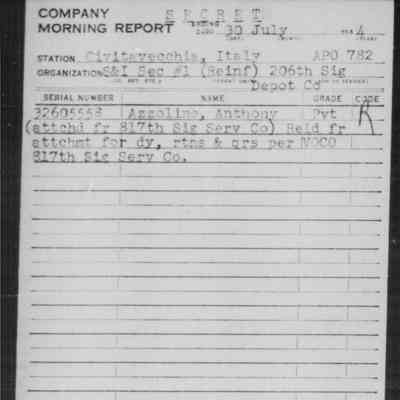 COMPANY
SECRET
MORNING REPORT
ENDING
30 July
194 4
STATION Civitavecchia, Italy APO 782
ORGANIZATION S&I Sec #1 (Reinf) 206th Sig
Depot Co
SERIAL NUMBER NAME GRADE CODE
32605558 Azzolino, Anthony Pvt R
(attchd fr 817th Sig Serv Co) Reld fr
attchmt for dy, rtns & qrs per VOCO
817th Sig Serv Co.